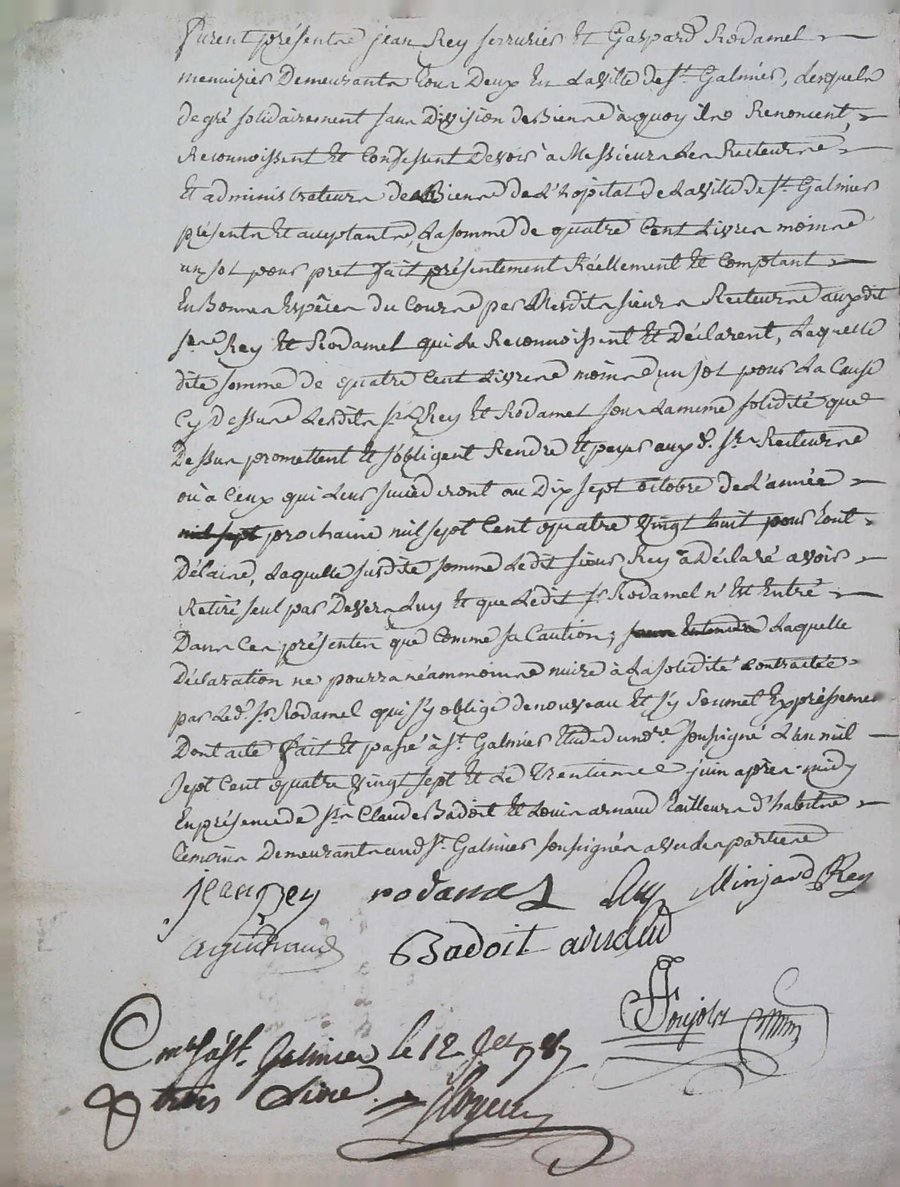 furent présents jean Rey serrurier Et Gaspard Rodamel
menuizier Demeurants tous Deux En La ville de St. Galmier, Lesquels
de gré solidairement sans Division de Biens à quoy ils Renoncent,
Reconnoissent Et Confessent Devoir à Messieurs Les Recteurs
Et administrateurs de Biens de L'hopital de La ville de St. Galmier
présents Et acceptants, La somme de quatre Cent Livres moins
un sol pour pret fait présentement Réellement Et Comptant
En Bonnes Espèces du Cours par Mesdits sieurs Recteurs auxdit
srs Rey Et Rodamel qui Le Reconnoissent Et Déclarent, Laquelle
dite somme de quatre Cent Livres moins un sol pour La Cause
Cy Dessus Lesdits srs Rey Et Rodamel sous La meme solidité que
Dessus promettent Et s'obligent Rendre Et payer aux d. srs Recteurs
où à Ceux qui Leur succederont au Dix sept octobre de L'année
prochaine mil sept Cent quatre Vingt huit pour tout
Délais, Laquelle susdite somme Ledit sieur Rey a Déclaré avoir
Retiré seul par Devers Luy Et que Ledit sr Rodamel n'Est Entré
Dans Ces présentes que Comme sa Caution, Laquelle
Déclaration ne pourra néammoins nuire à La solidité Contractée
par Led. sr Rodamel qui s'y oblige de nouveau Et s'y Soumet Expréssemen
Dont acte fait Et passé à St. Galmier Etude du nore. soussigné L'an mil
sept Cent quatre Vingt sept Et Le trentieme juin après-midy
En présence de srs Claude Badoit Et Louis arnaud tailleurs d'habits
témoins Demeurants aud St. Galmier soussignés avec les parties
jean Rey rodamel Minjard Rey
Badoit arnaud
Cmé à St. Galmier le 12 Jet 1787
trois Livres